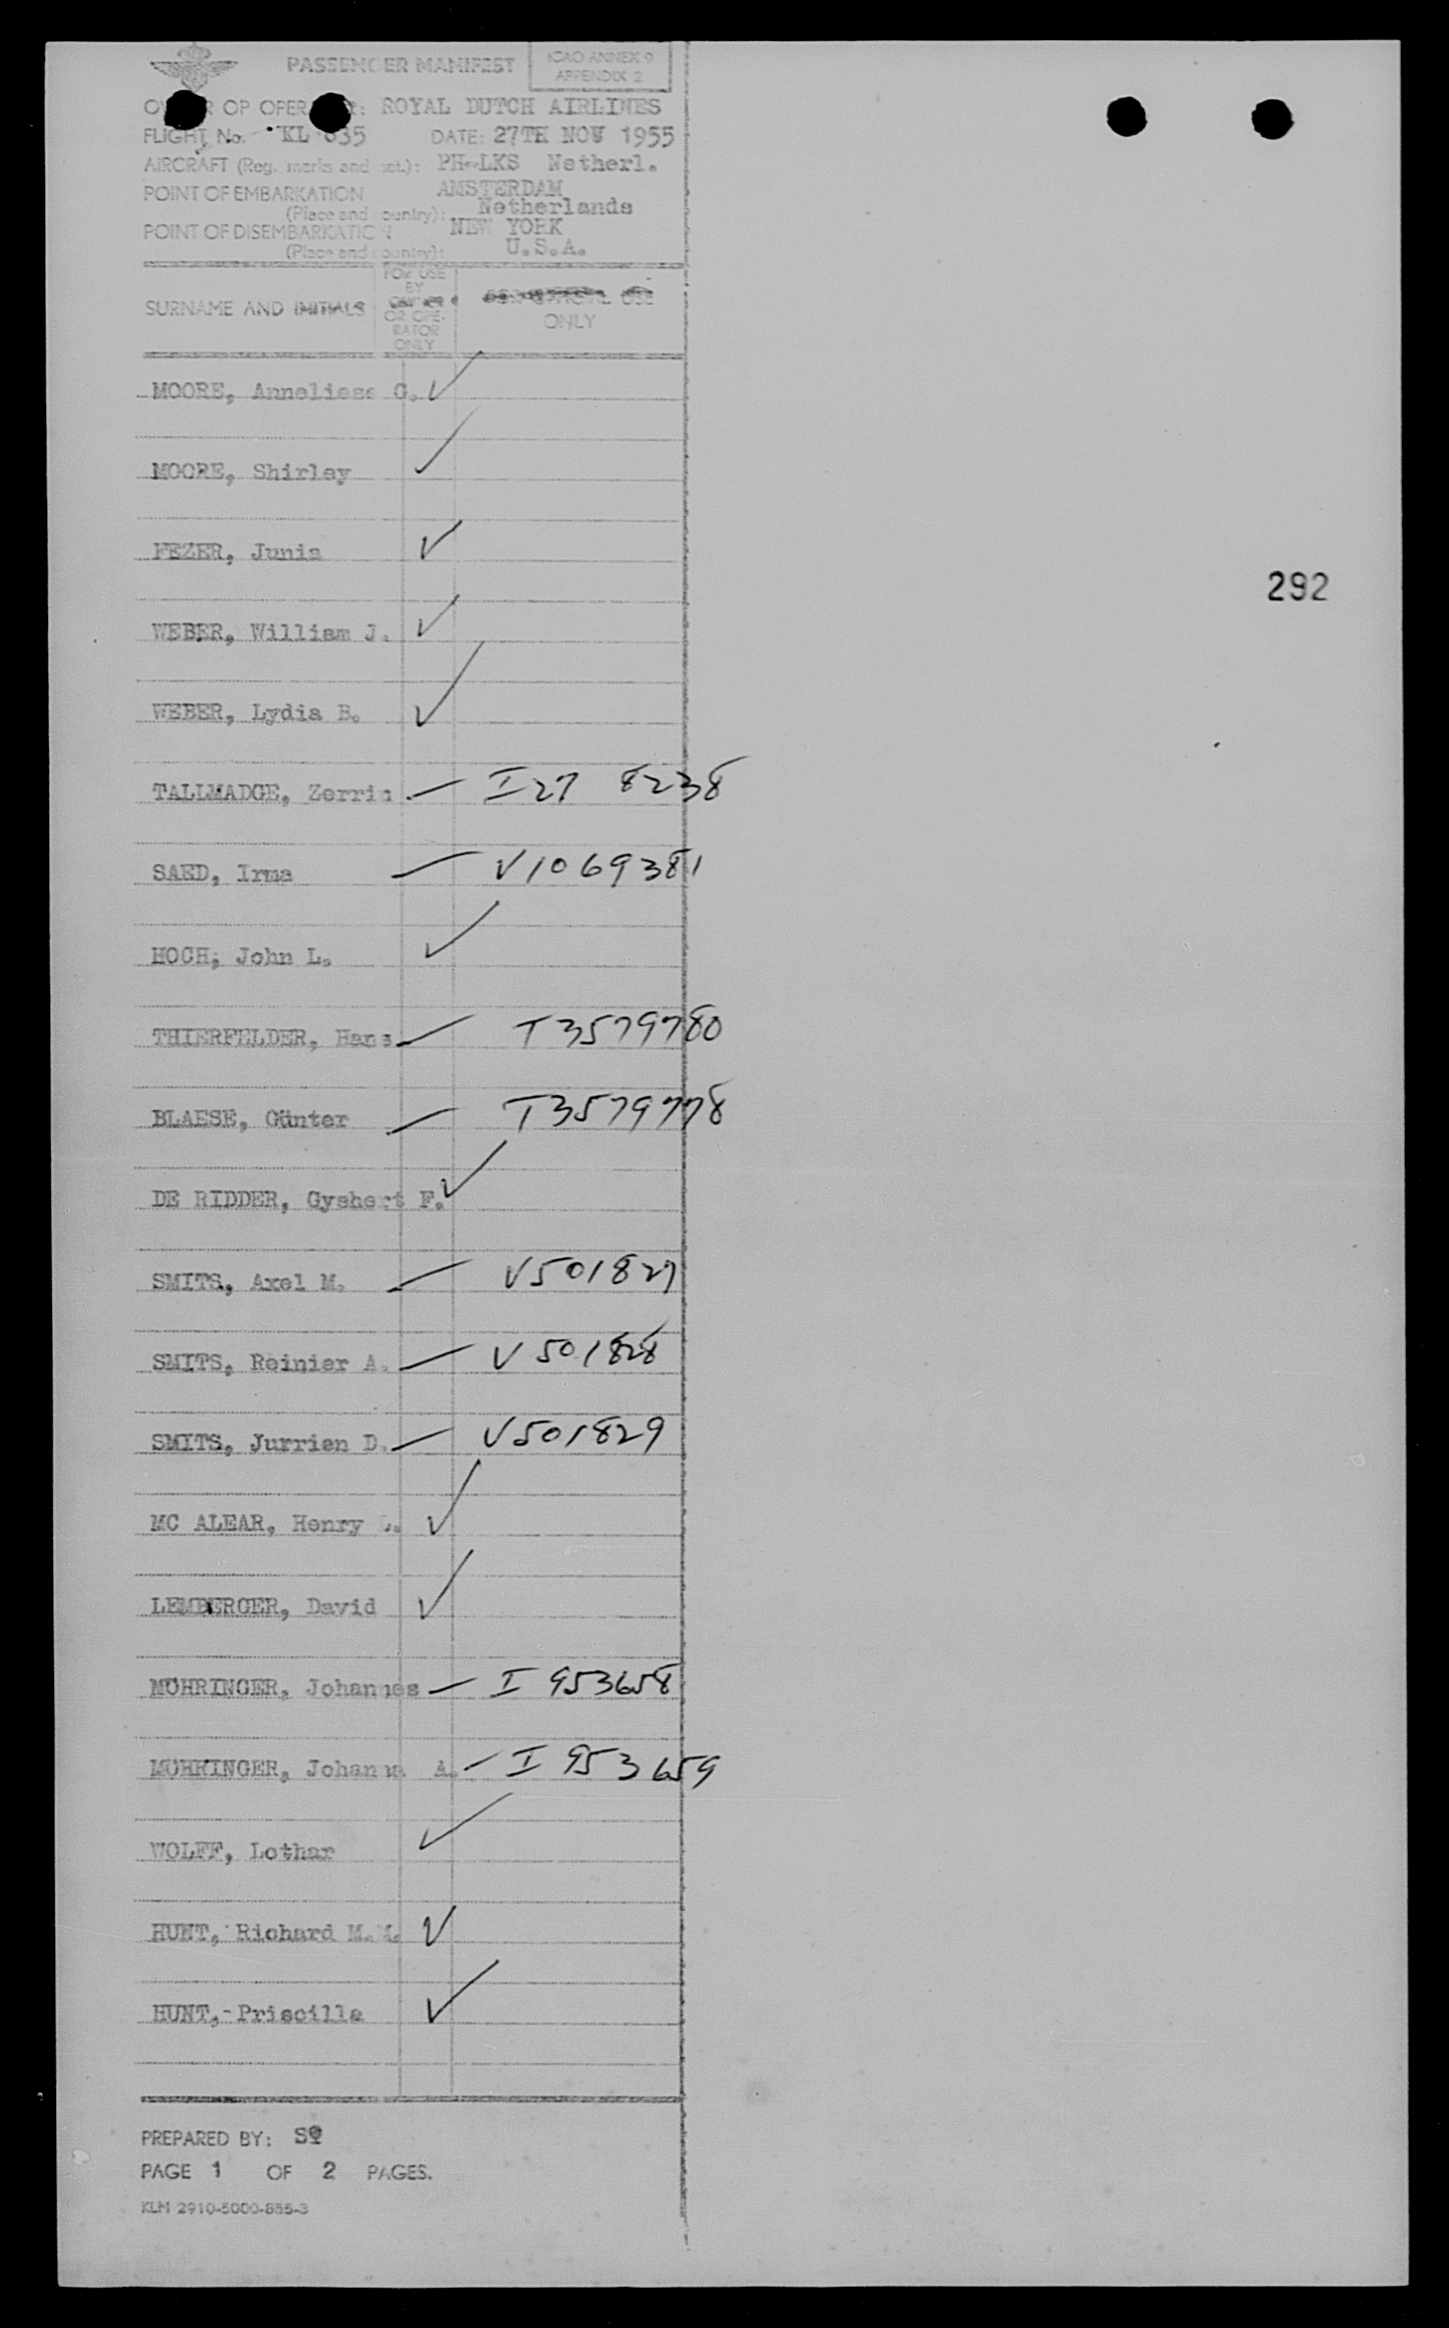 PASSENGER MANIFEST
ICAO ANNEX 9
APPENDIX 2
OWNER OR OPERATOR: ROYAL DUTCH AIRLINES
FLIGHT No. KL 635 DATE: 27TH NOV 1955
AIRCRAFT (Reg. marks and nat.): PH-LKS Netherl.
POINT OF EMBARKATION AMSTERDAM
(Place and country): Netherlands
POINT OF DISEMBARKATION NEW YORK
(Place and country): U.S.A.
SURNAME AND INITIALS
FOR USE
BY
OWNER
OR OPE-
RATOR
ONLY
ONLY
MOORE, Anneliese G.
MOORE, Shirley
FEZER, Junis
WEBER, William J.
WEBER, Lydia B.
TALLMADGE, Zerria I27 8238
SAED, Irma V1069381
HOCH, John L.
THIERFELDER, Hans T3579780
BLAESE, Günter T3579778
DE RIDDER, Gysbert F.
SMITS, Axel M. V501827
SMITS, Reinier A. V501828
SMITS, Jurrien D. V501829
MC ALEAR, Henry L.
LEMBERGER, David
MOHRINGER, Johannes I 953658
MOHRINGER, Johanna A. I 953659
WOLFF, Lothar
HUNT, Richard M.
HUNT,-Priscilla
PREPARED BY:
PAGE 1 OF 2 PAGES.
KLM 2910-5000-855-3
292